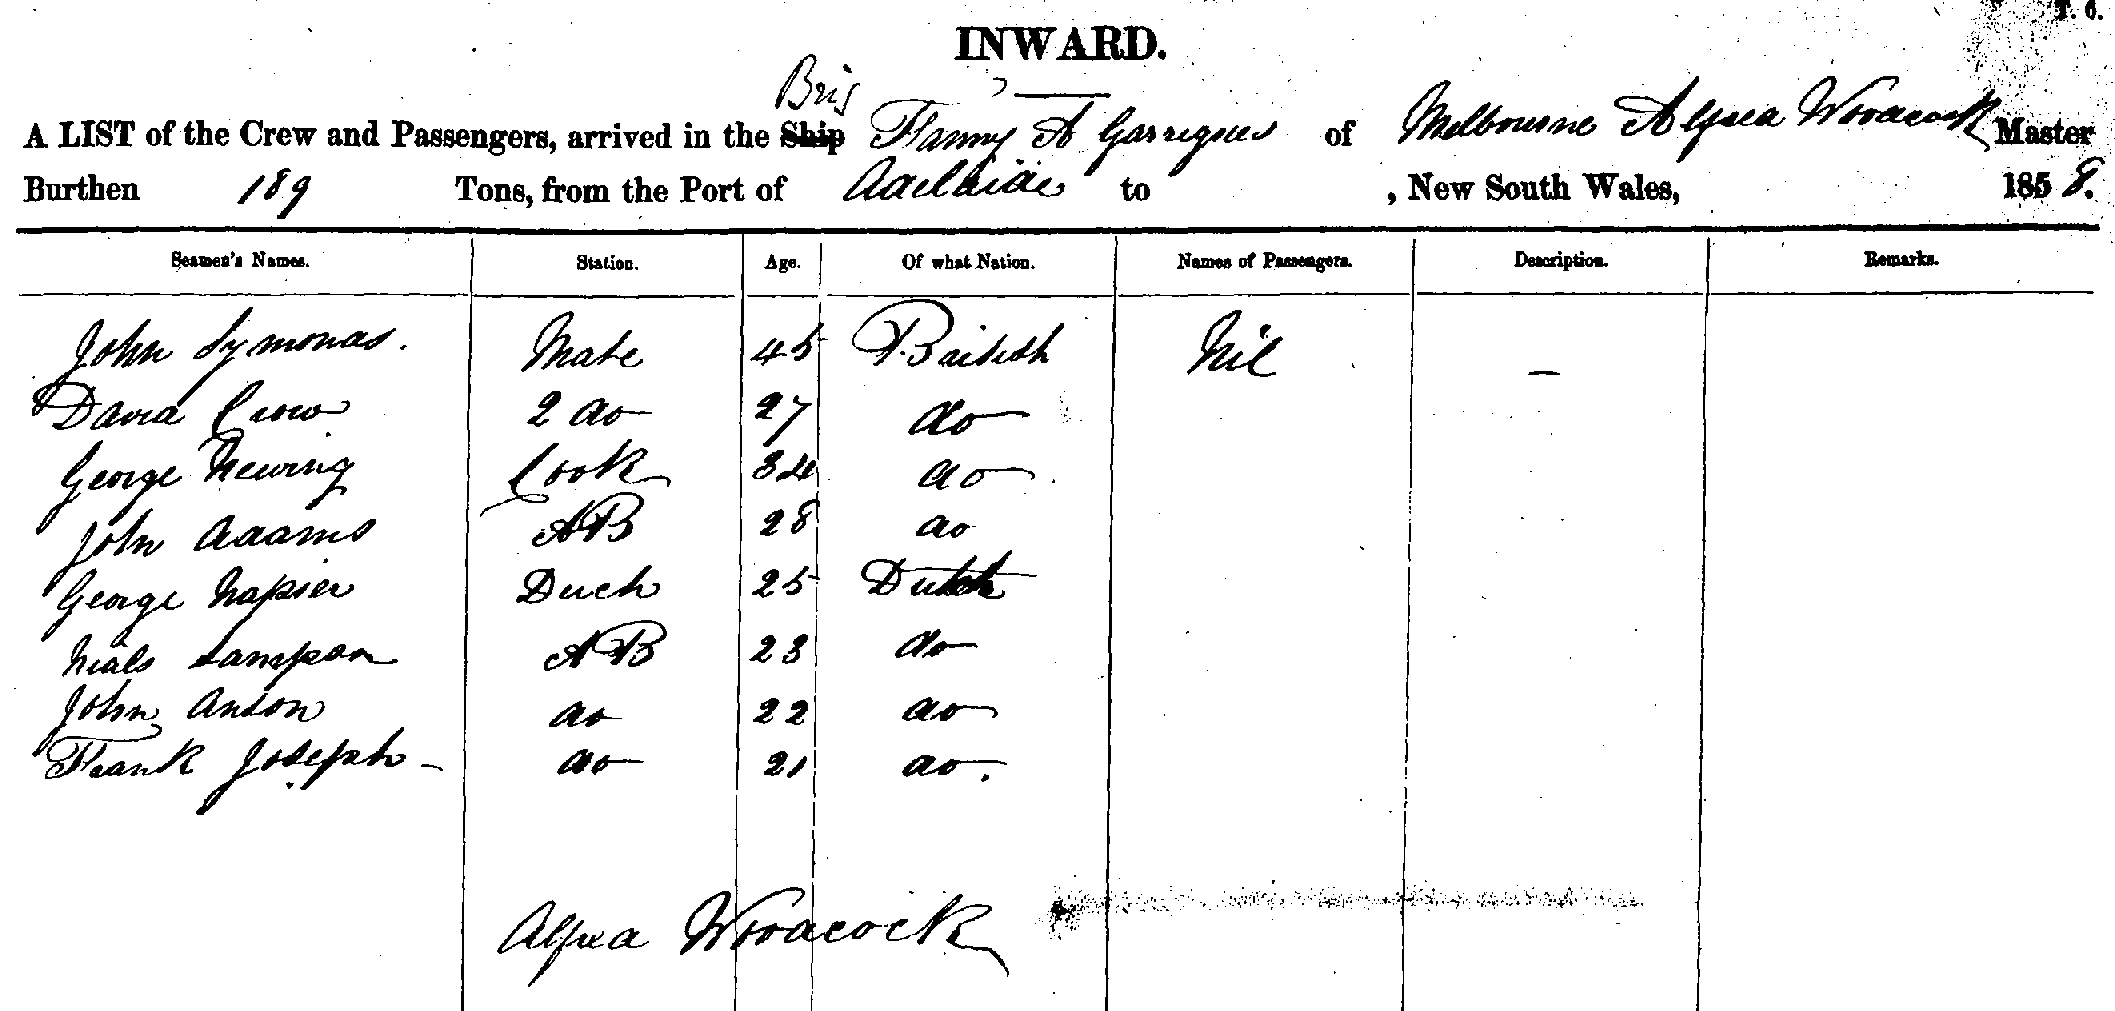 T. 6.
INWARD.
Brig
A LIST of the Crew and Passengers, arrived in the Ship Fanny A Garrigues of Melbourne Alfred Woodcock Master
Burthen 189 Tons, from the Port of Adelaide to , New South Wales, 1858.
Seamen's Names. Station. Age. Of what Nation. Names of Passengers. Description. Remarks.
John Symonds. Mate 45 British Nil —
David Crow 2 do 27 do
George Newing Cook 34 do
John Adams AB 28 do
George Napier Duch 25 Dutch
Nials Sampson AB 23 do
John Anson do 22 do
Frank Joseph do 21 do.
Alfred Woodcock